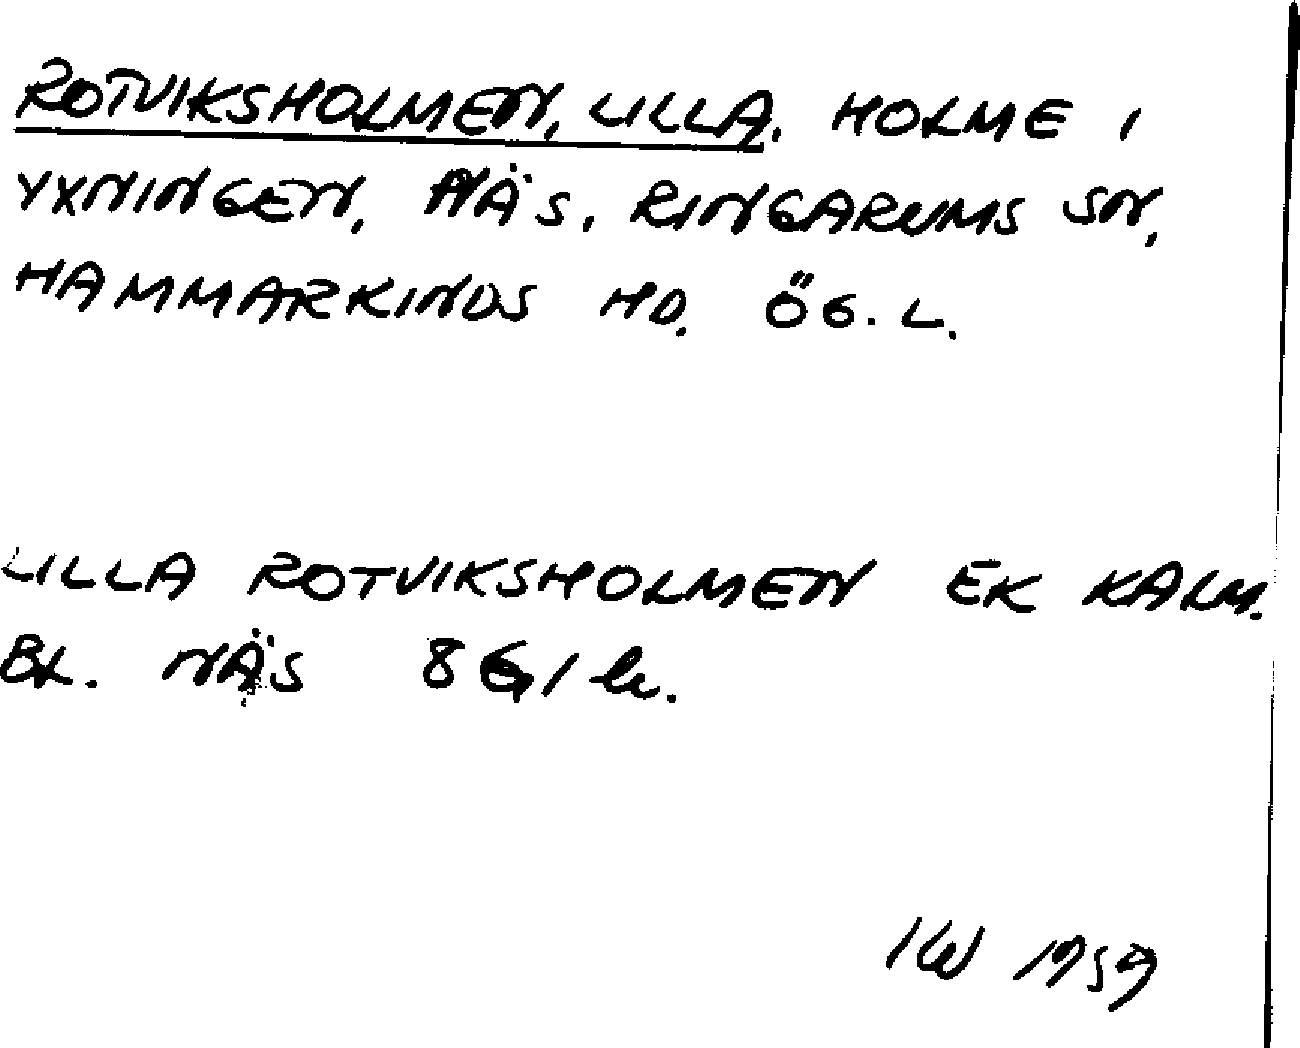 ROTVIKSHOLMEN, LILLA. HOLME I
YXNINGEN, NÄS, RINGARUMS SN,
HAMMARKINDS HD. ÖG. L.
LILLA ROTVIKSHOLMEN EK KALM.
BL. NÄS
IW 1959